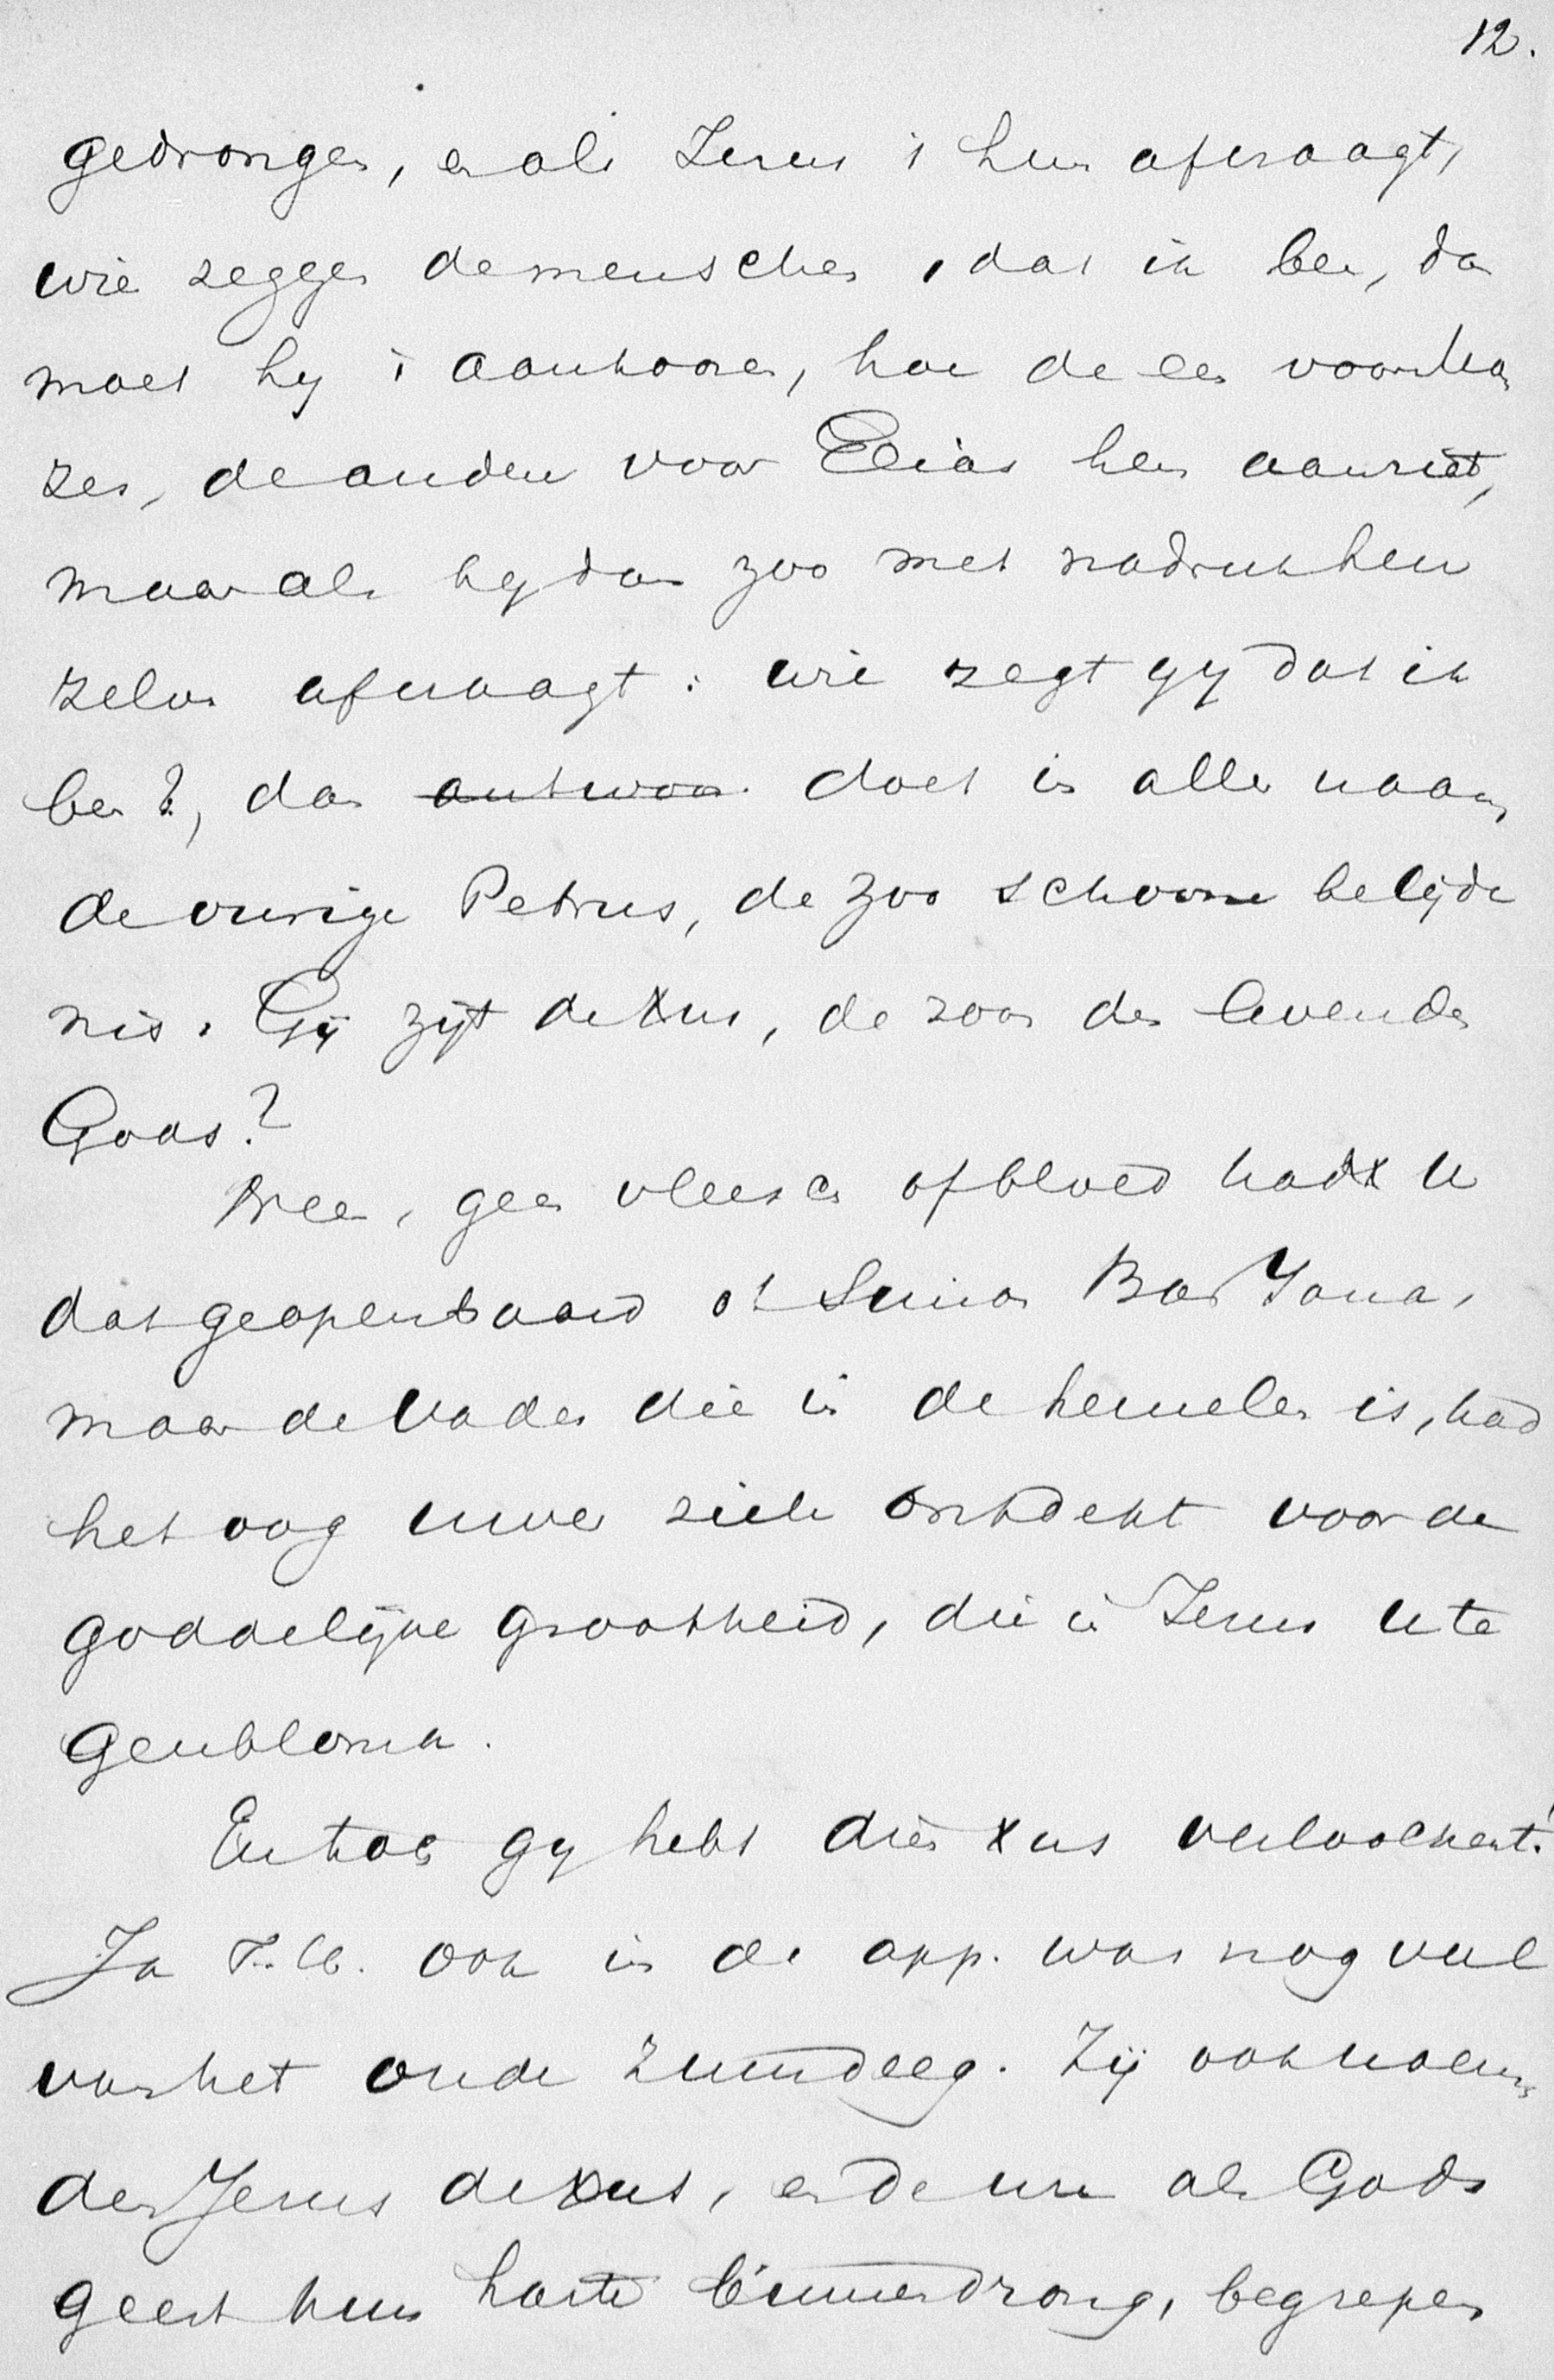 12.
gedrongen, en als Jezus 't hun afvraagt,
wie zeggen de menschen, dat ik ben, dan
moet hij 't aanhooren, hoe de een voor Mo
zes, de andere voor Elias hem aanziet,
maar als hij dan zoo met nadruk hen
zelven afvraagt: wie zegt gij dat ik
ben?, dan antwoor doet in aller naam
de vurige Petrus, de zoo schoone belijde
nis. Gij zijt de Xus, de zoon des levenden
Gods?
Neen, geen vleesch of bloed had U
dat geopenbaard o Simon Bar Jona,
maar de Vader die in de hemelen is, had
het oog uwer ziele ontdekt voor de
goddelijke grootheid, die in Jezus U te
genblonk.
En toch gij hebt dien Xus verloochent!
Ja T. G. ook in de app. was nog veel
van het oude zuurdeeg. Zij ook noem
den Jezus de Xus, en de ure als Gods
geest hun harte binnendrong, begrepen